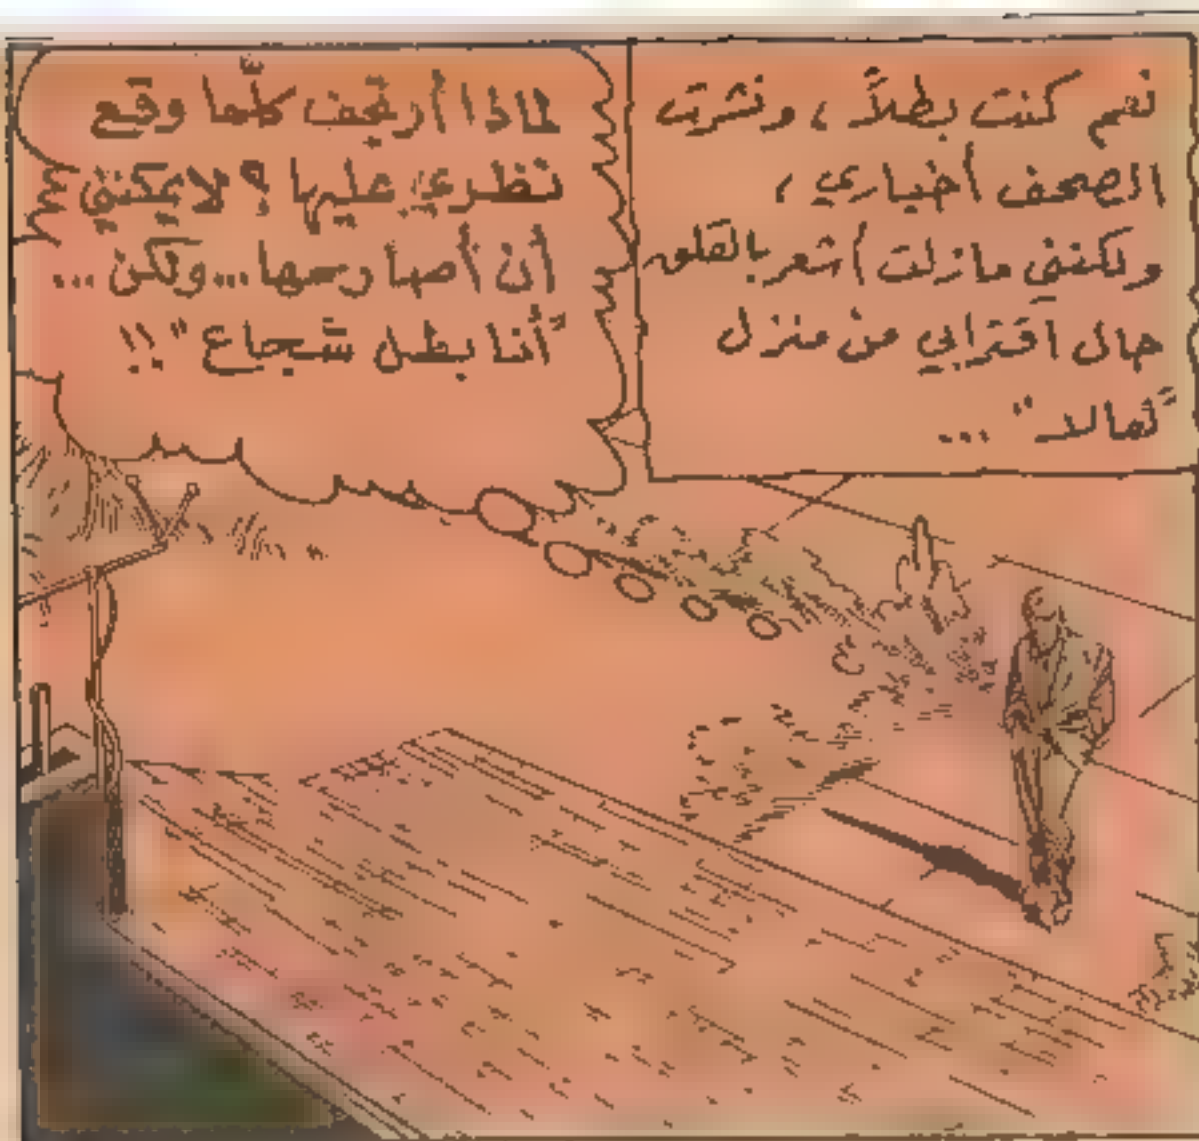 نعم كنت بطلاً ، ونشرت
الصحف أخباري ،
ولكنني مازلت أشعر بالقلق
حال اقترابي من منزل
"لمالا" ...
لماذا أرتجف كلّما وقع
نظري عليها ؟ لا يمكنني
أن أصارحها ... ولكن ...
"أنا بطل شجاع" !!